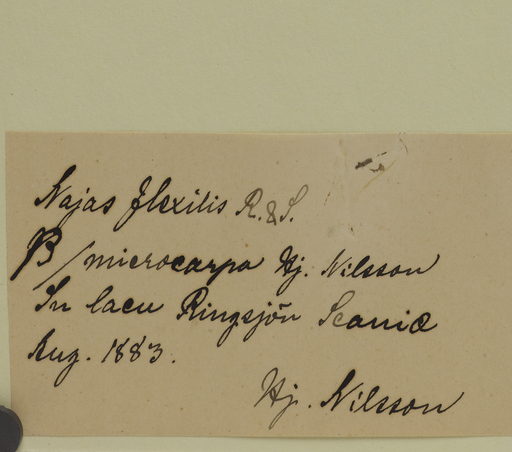 Najas flexilis R. & S.
β/microcarpa Hj. Nilsson
In lacu Ringsjön Scaniæ
Aug. 1883.
Hj. Nilsson